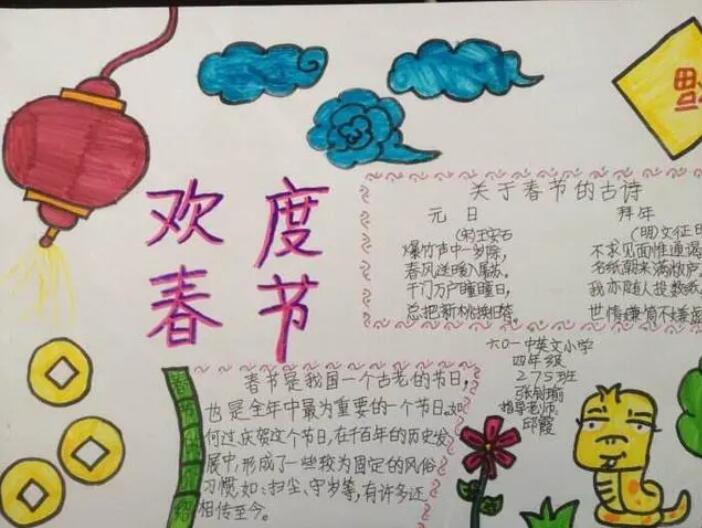 欢度
春节
福
关于春节的古诗
元日
(宋)王安石
爆竹声中一岁除,
春风送暖入屠苏。
千门万户曈曈日,
总把新桃换旧符。
拜年
(明)文征明
不求见面惟通谒
名纸朝来满敝庐
我亦随人投数纸
世情嫌简不嫌虚
六〇一中英文小学
四年级
275班
指导老师:
邱霞
春节的介绍
春节是我国一个古老的节日,
也是全年中最为重要的一个节日,如
何过庆贺这个节日,在千百年的历史发
展中,形成了一些较为固定的风俗
习惯,如:扫尘、守岁等,有许多还
相传至今。